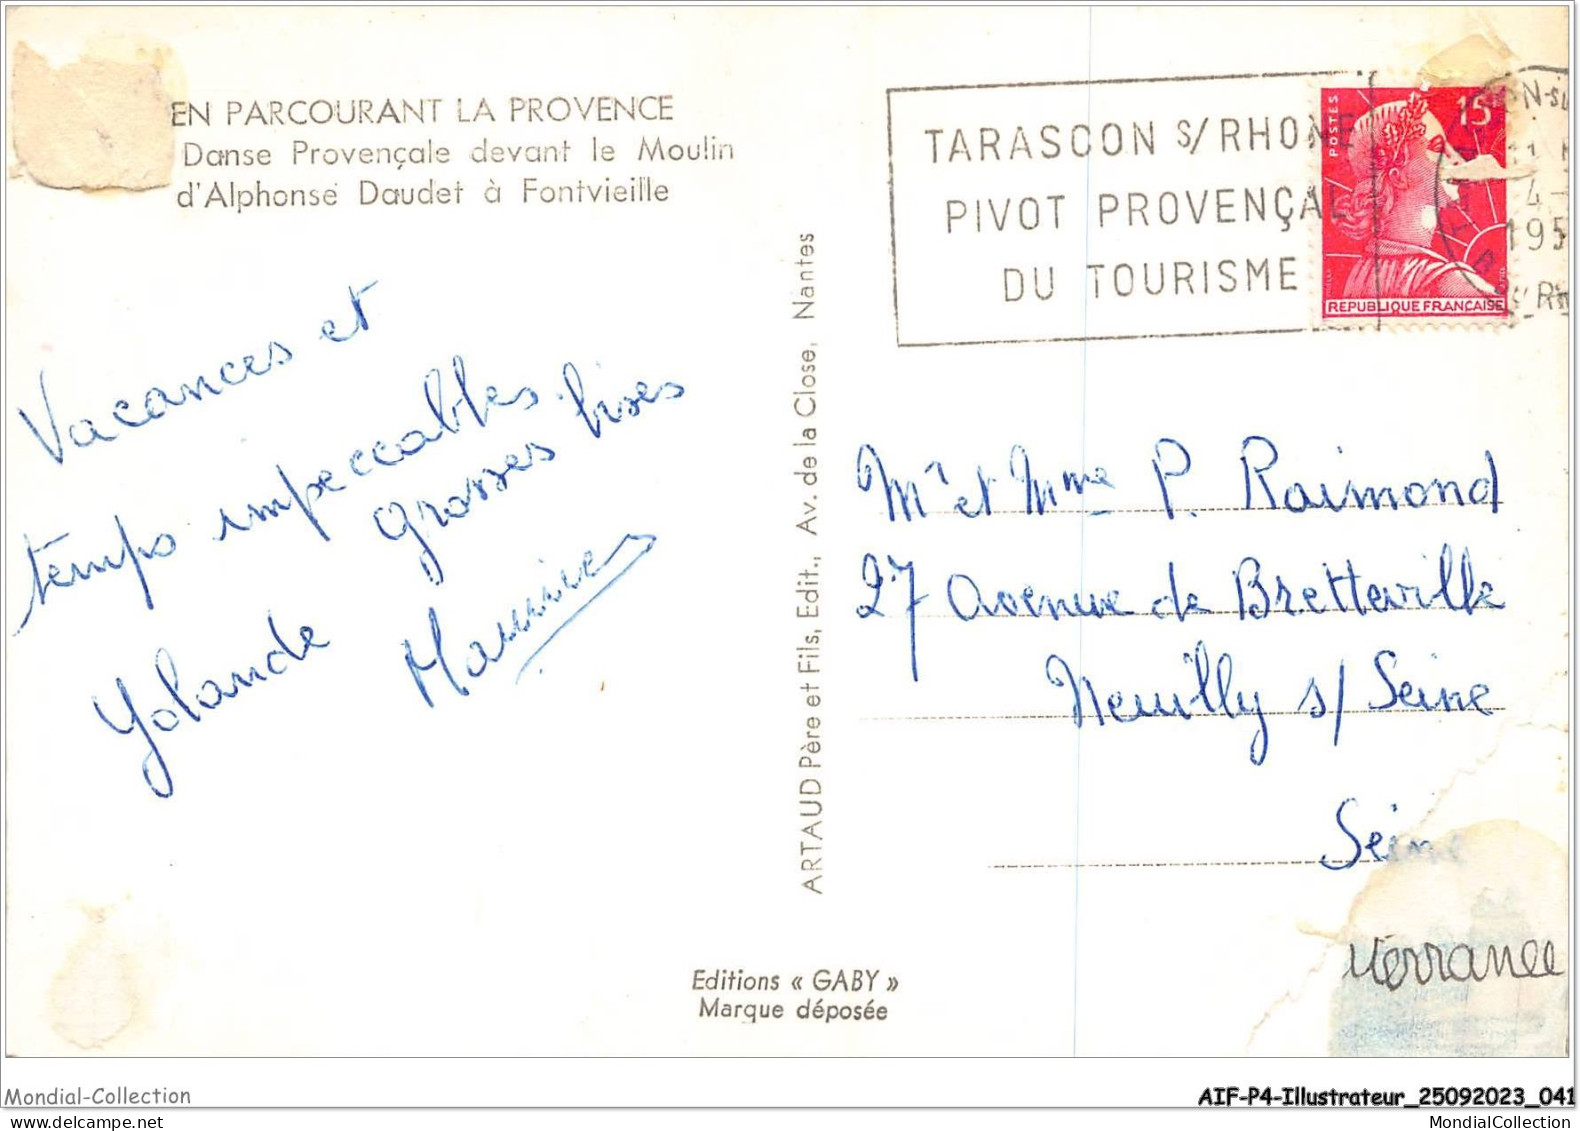 EN PARCOURANT LA PROVENCE
Danse Provençale devant le Moulin
d'Alphonse Daudet à Fontvieille
Vacances et
temps impeccables.
grosses bises
Yolande
ARTAUD Père et Fils, Edit., Av. de la Close, Nantes
Editions « GABY »
Marque déposée
TARASCON S/ RHONE
PIVOT PROVENÇAL
DU TOURISME
POSTES
15F
REPUBLIQUE FRANÇAISE
Mr et Mme P. Raimond
27 Avenue de Bretteville
Neuilly s/ Seine
Seine
Mondial-Collection
AIF-P4-Illustrateur_25092023_041
MondialCollection